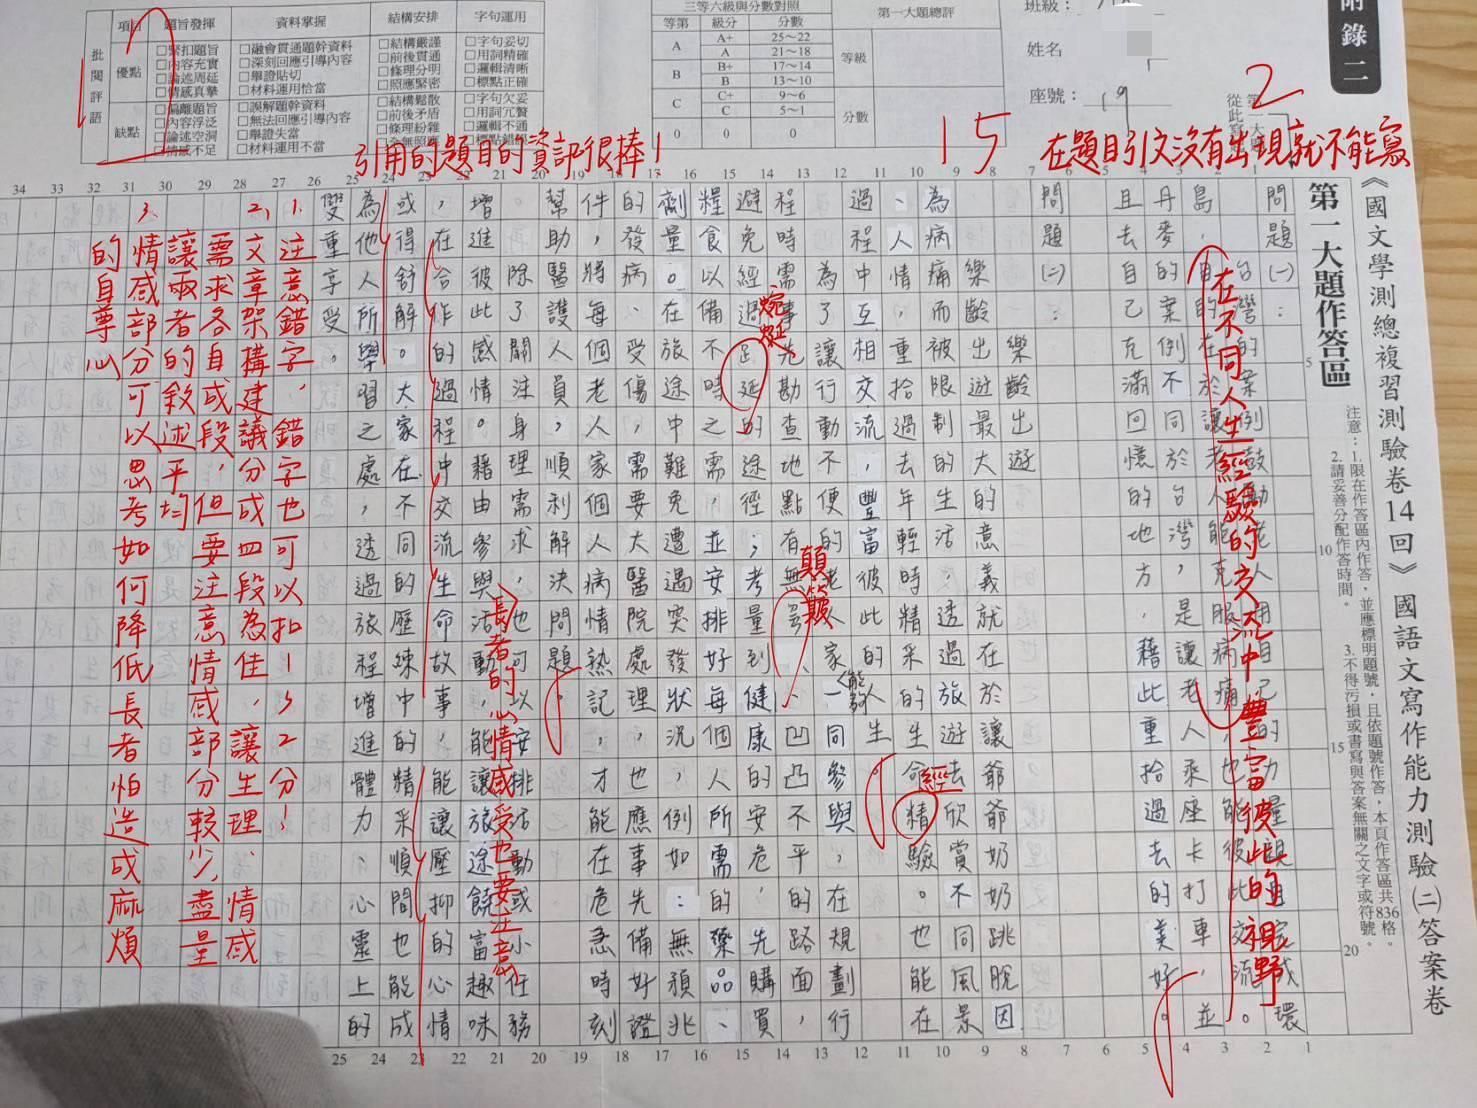 附錄二
班級：
姓名
座號： 19
2
《國文學測總複習測驗卷14回》國語文寫作能力測驗㈡答案卷
項目 題旨發揮 資料掌握 結構安排 字句運用
批閱評語
優點
□緊扣題旨 □融會貫通題幹資料 □結構嚴謹 □字句妥切
□內容充實 □深刻回應引導內容 □前後貫通 □用詞精確
□論述周延 □舉證貼切 □條理分明 □邏輯清晰
□情感真摯 □材料運用恰當 □照應緊密 □標點正確
缺點
□偏離題旨 □誤解題幹資料 □結構鬆散 □字句欠妥
□內容浮泛 □無法回應引導內容 □前後矛盾 □用詞冗贅
□論述空洞 □舉證失當 □條理紛雜 □邏輯不通
□情感不足 □材料運用不當
三等六級與分數對照
等第 級分 分數
A A+ 25～22
A 21～18
B B+ 17～14
B 13～10
C C+ 9～6
C 5～1
0 0 0
第一大題總評
等級
分數
15
在題目引文沒有出現就不能寫
引用的題目的資訊很棒！
第一大題作答區
注意：1.限在作答區內作答，並應標明題號，且依題號作答，本頁作答區共836格。
2.請妥善分配作答時間。
3.不得污損或書寫與答案無關之文字或符號。
問題㈠：
台灣的案例鼓勵老人用自己的力量親自完成環
島，目的在於讓老人能克服病痛也能彼此交流。並
在不同人生經驗的交流中豐富彼此的視野
丹麥的案例不同於台灣，是讓老人乘座卡打車，
且去自己充滿回憶的地方，藉此重拾過去的美好。
問題㈡：
樂齡出遊
樂齡出遊最大的意義就在於讓爺爺奶奶跳脫因
為病痛而被限制的生活，透過旅遊去欣賞不同風景
、人情，重拾過去年輕時精采的人生經驗。也能在
經
過程中互相交流，豐富彼此的生命
能夠
為了讓行動不便的老人家一同參與，在規劃行
程時需事先勘查地點有無凹凸不平的路面，
顛簸
避免經過延的途徑；考量到健康的安危，先購買
蜿蜒
糧食以備不時之需，並安排好每個人所需的藥品、
劑量。在旅途中難免遭遇突發狀況，例如：無預兆
的發病、受傷，需要大醫院處理，也應事先備好證
件，將每個老人家個人病情熟記，才能在危急時刻
幫助醫護人員順利解決問題。
除了關注身理需求，也可以安排活動或小任務
長者的心情感受也要注意
增進彼此感情。藉由參與活動，能讓旅途饒富趣味
，在合作的過程中交流生命故事，能讓壓抑的心情
或得舒解。大家在不同的歷練中的精采，順間也能成
為他人所學習之處，透過旅程增進體力、心靈上的
雙重享受。
1.注意錯字，錯字也可以扣1～2分！
2.文章架構建議分成四段為佳，讓生理、情感
需求各自成段，但要注意情感部分較少，盡量
讓兩者的敘述平均
3.情感部分可以思考如何降低長者怕造成麻煩
的自尊心